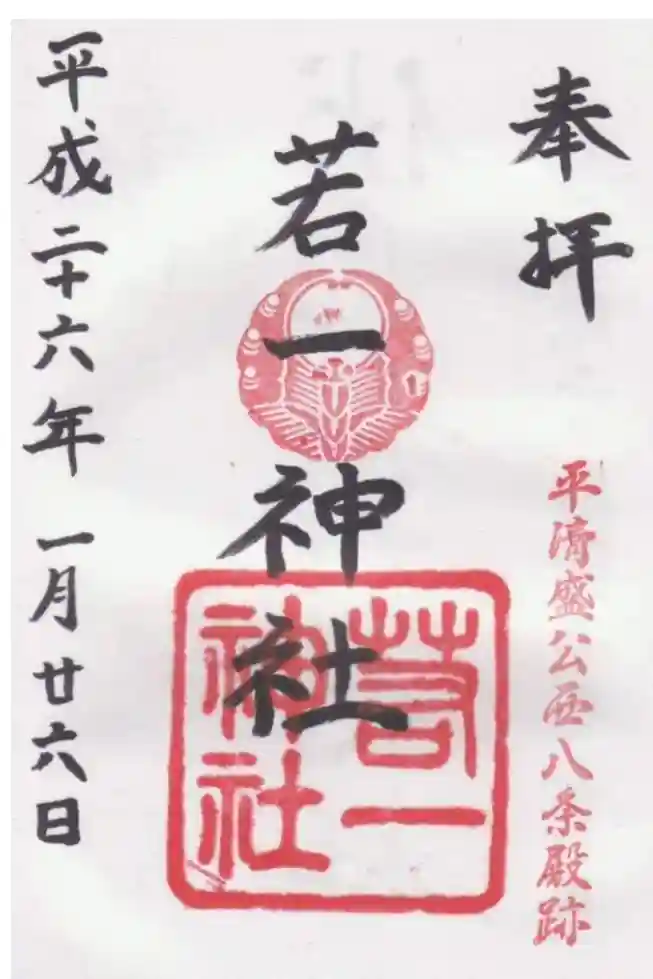 奉拝
平清盛公西八条殿跡
若一神社
若一
神社
平成二十六年一月廿六日